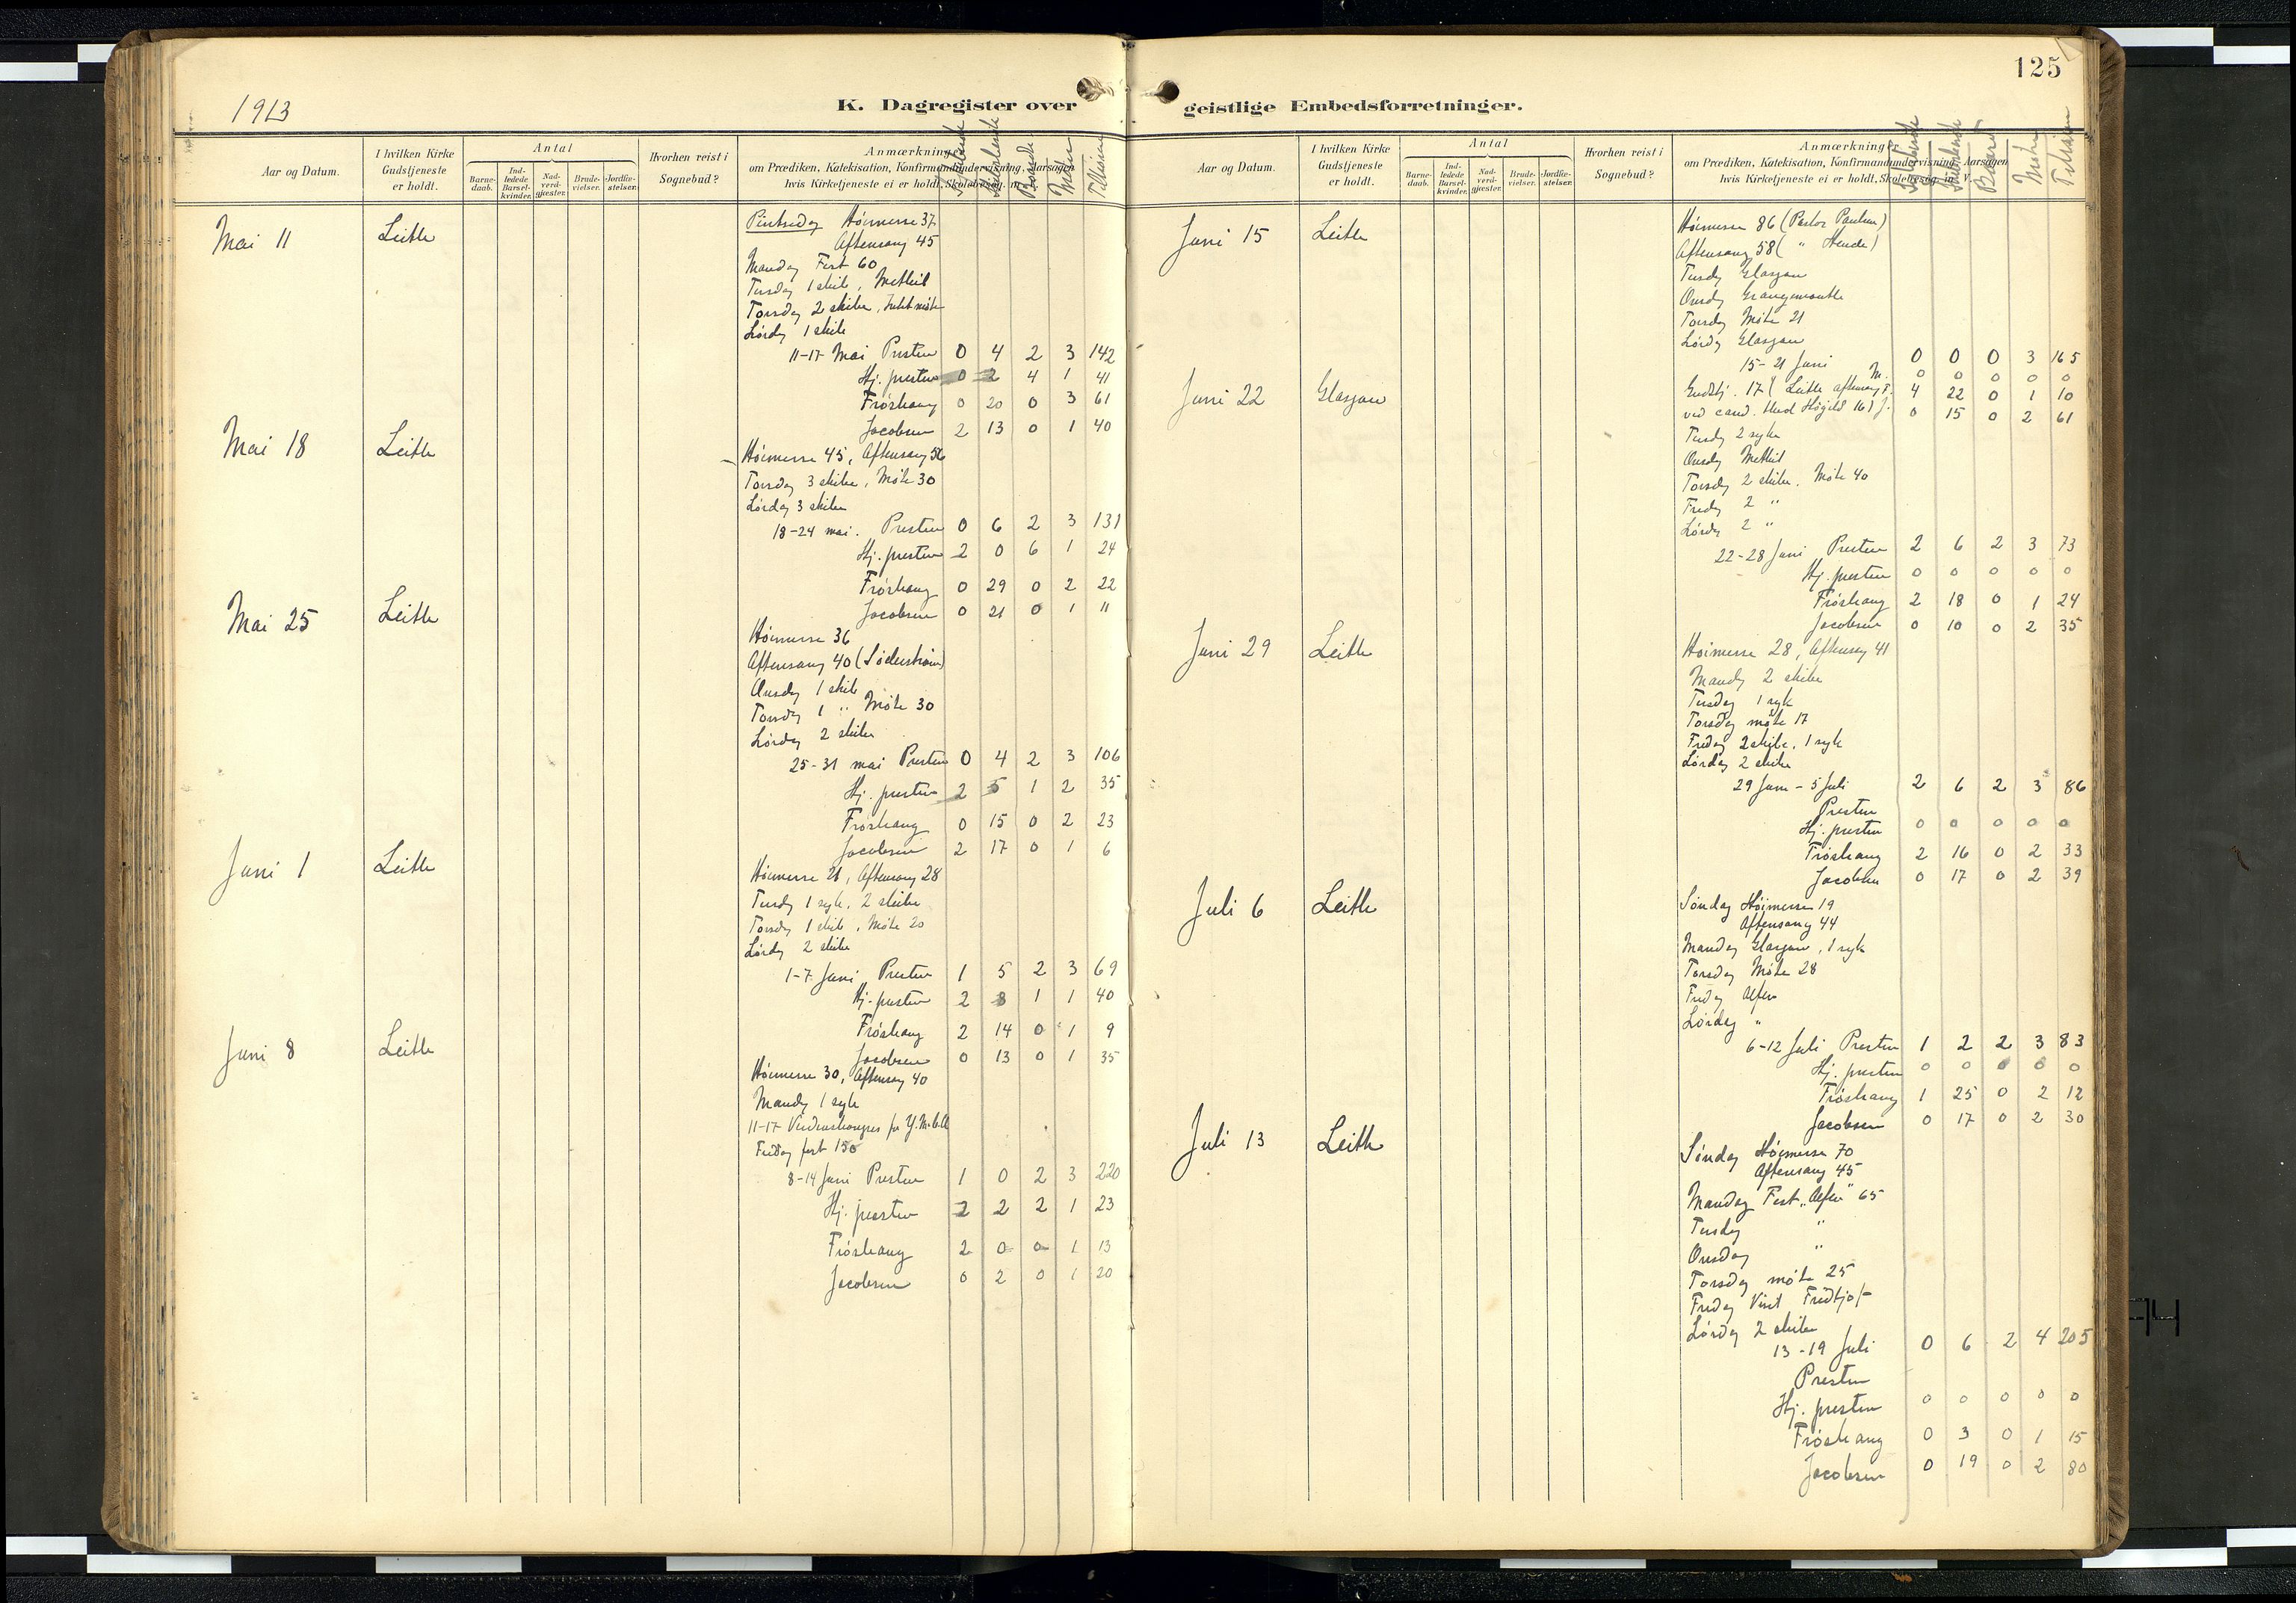 1913
K. Dagregister over
Aar og Datum.
I hvilken Kirke Gudstjeneste er holdt.
Antal
Barne-daab.
Ind-ledede Barsel-kvinder.
Nad-verd-gjester.
Brude-vielser.
Jordfæ-stelser.
Hvorhen reist i Sognebud?
Anmærkninger
om Prædiken, Katekisation, Konfirmandundervisning, Aarsagen
hvis Kirketjeneste ei er holdt, Skolebesøg. m. v.
Mai 11 Leith
Pintsedag Høimesse 37
Aftensang 45
Mandag Fest 60
Tirsdag 1 skib, Methil
Torsdag 2 skibe,
Lørdag 1 skib
11-17 Mai Presten 0 4 2 3 142
Hj. presten 0 2 4 1 41
Frøshaug 0 20 0 3 61
Jacobsen 2 13 0 1 40
Mai 18 Leith
Høimesse 45, Aftensang 56
Torsdag 3 skibe, Møte 30
Lørdag 3 skibe
18-24 mai. Presten 0 6 2 3 131
Hj. presten 2 0 6 1 24
Frøshaug 0 29 0 2 22
Jacobsen 0 21 0 1 11
Mai 25 Leith
Høimesse 36
Aftensang 40 (Söderström)
Onsdag 1 skib
Torsdag 1 " Møte 30
Lørdag 2 skibe
25-31 mai Presten 0 4 2 3 106
Hj. presten 2 5 1 2 35
Frøshaug 0 15 0 2 23
Jacobsen 2 17 0 1 6
Juni 1 Leith
Høimesse 21, Aftensang 28
Tirsdag 1 syk, 2 skibe
Torsdag 1 skib, Møte 20
Lørdag 2 skibe
1-7 Juni Presten 1 5 2 3 69
Hj. presten 2 8 1 1 40
Frøshaug 2 14 0 1 9
Jacobsen 0 13 0 1 35
Juni 8 Leith
Høimesse 30, Aftensang 40
Mandag 1 syk
11-17 Verdenskongres for Y.M.C.A
Fredag fest 150
8-14 Juni Presten 1 0 2 3 220
Hj. presten 2 2 2 1 23
Frøshaug 2 0 0 1 13
Jacobsen 0 2 0 1 20
125
geistlige Embedsforretninger.
Aar og Datum.
I hvilken Kirke Gudstjeneste er holdt.
Antal
Barne-daab.
Ind-ledede Barsel-kvinder.
Nad-verd-gjester.
Brude-vielser.
Jordfæ-stelser.
Hvorhen reist i Sognebud?
Anmærkninger
om Prædiken, Katekisation, Konfirmandundervisning, Aarsagen
hvis Kirketjeneste ei er holdt, Skolebesøg. m. v.
Juni 15 Leith
Høimesse 86 (Pastor Paulsen)
Aftensang 58 ( "
Tirsdag Glasgow
Onsdag Grangemouth
Torsdag Møte 21
Lørdag Glasgow
15-21 Juni 0 0 0 3 165
0 0 0 0 0
Juni 22 Glasgow
Gudstj. 17 ( Leith aftensang F. 4 22 0 1 10
ved cand. Høgild 16) J. 0 15 0 2 61
Tirsdag 2 syke
Onsdag Methil
Torsdag 2 skibe. Møte 40
Fredag 2 "
Lørdag 2 "
22-28 Juni Presten 2 6 2 3 73
Hj. presten 0 0 0 0 0
Frøshaug 2 18 0 1 24
Jacobsen 0 10 0 2 35
Juni 29 Leith
Høimesse 28, Aftensang 41
Mandag 2 skibe
Tirsdag 1 syk
Torsdag møte 17
Fredag 2 skibe, 1 syk
Lørdag 2 skibe
29 Juni - 5 Juli 2 6 2 3 86
Presten
Hj. presten 0 0 0 0 0
Frøshaug 2 16 0 2 33
Jacobsen 0 17 0 2 39
Juli 6 Leith
Søndag Høimesse 19
Aftensang 44
Mandag Glasgow, 1 syk
Torsdag Møte 28
Fredag Alfen
Lørdag "
6-12 Juli Presten 1 2 2 3 83
Hj. presten 0 0 0 0 0
Frøshaug 1 25 0 2 12
Jacobsen 0 17 0 2 30
Juli 13 Leith
Søndag Høimesse 70
Aftensang 45
Mandag Fest „Alfen" 65
Tirsdag "
Onsdag "
Torsdag møte 25
Fredag Visit Fridtjof
Lørdag 2 skibe
13-19 Juli 0 6 2 4 205
Presten
Hj. presten 0 0 0 0 0
Frøshaug 0 3 0 1 15
Jacobsen 0 19 0 2 80